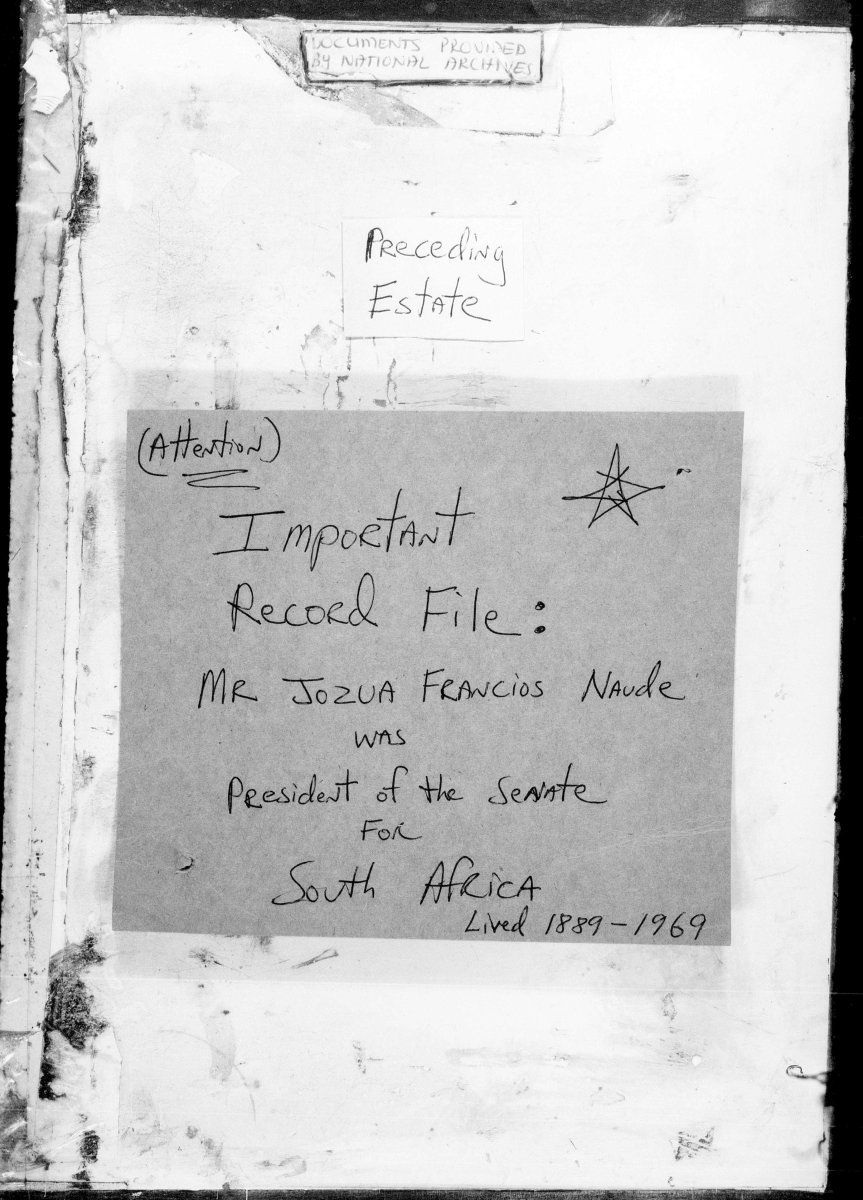 DOCUMENTS PROVIDED
BY NATIONAL ARCHIVES
Preceding
Estate
(Attention)
Important
Record File:
MR JOZUA FRANCIOS NAUDE
WAS
President of the Senate
FOR
South Africa
Lived 1889-1969